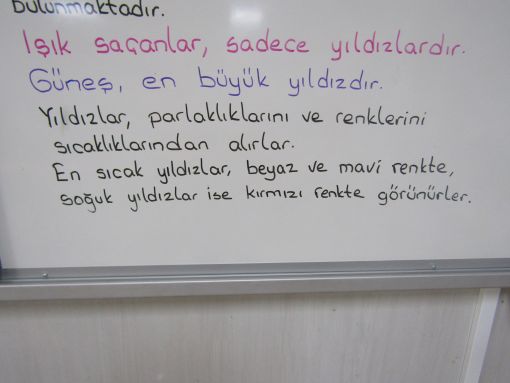 bulunmaktadır.
Işık saçanlar, sadece yıldızlardır.
Güneş, en büyük yıldızdır.
Yıldızlar, parlaklıklarını ve renklerini
sıcaklıklarından alırlar.
En sıcak yıldızlar, beyaz ve mavi renkte,
soğuk yıldızlar ise kırmızı renkte görünürler.